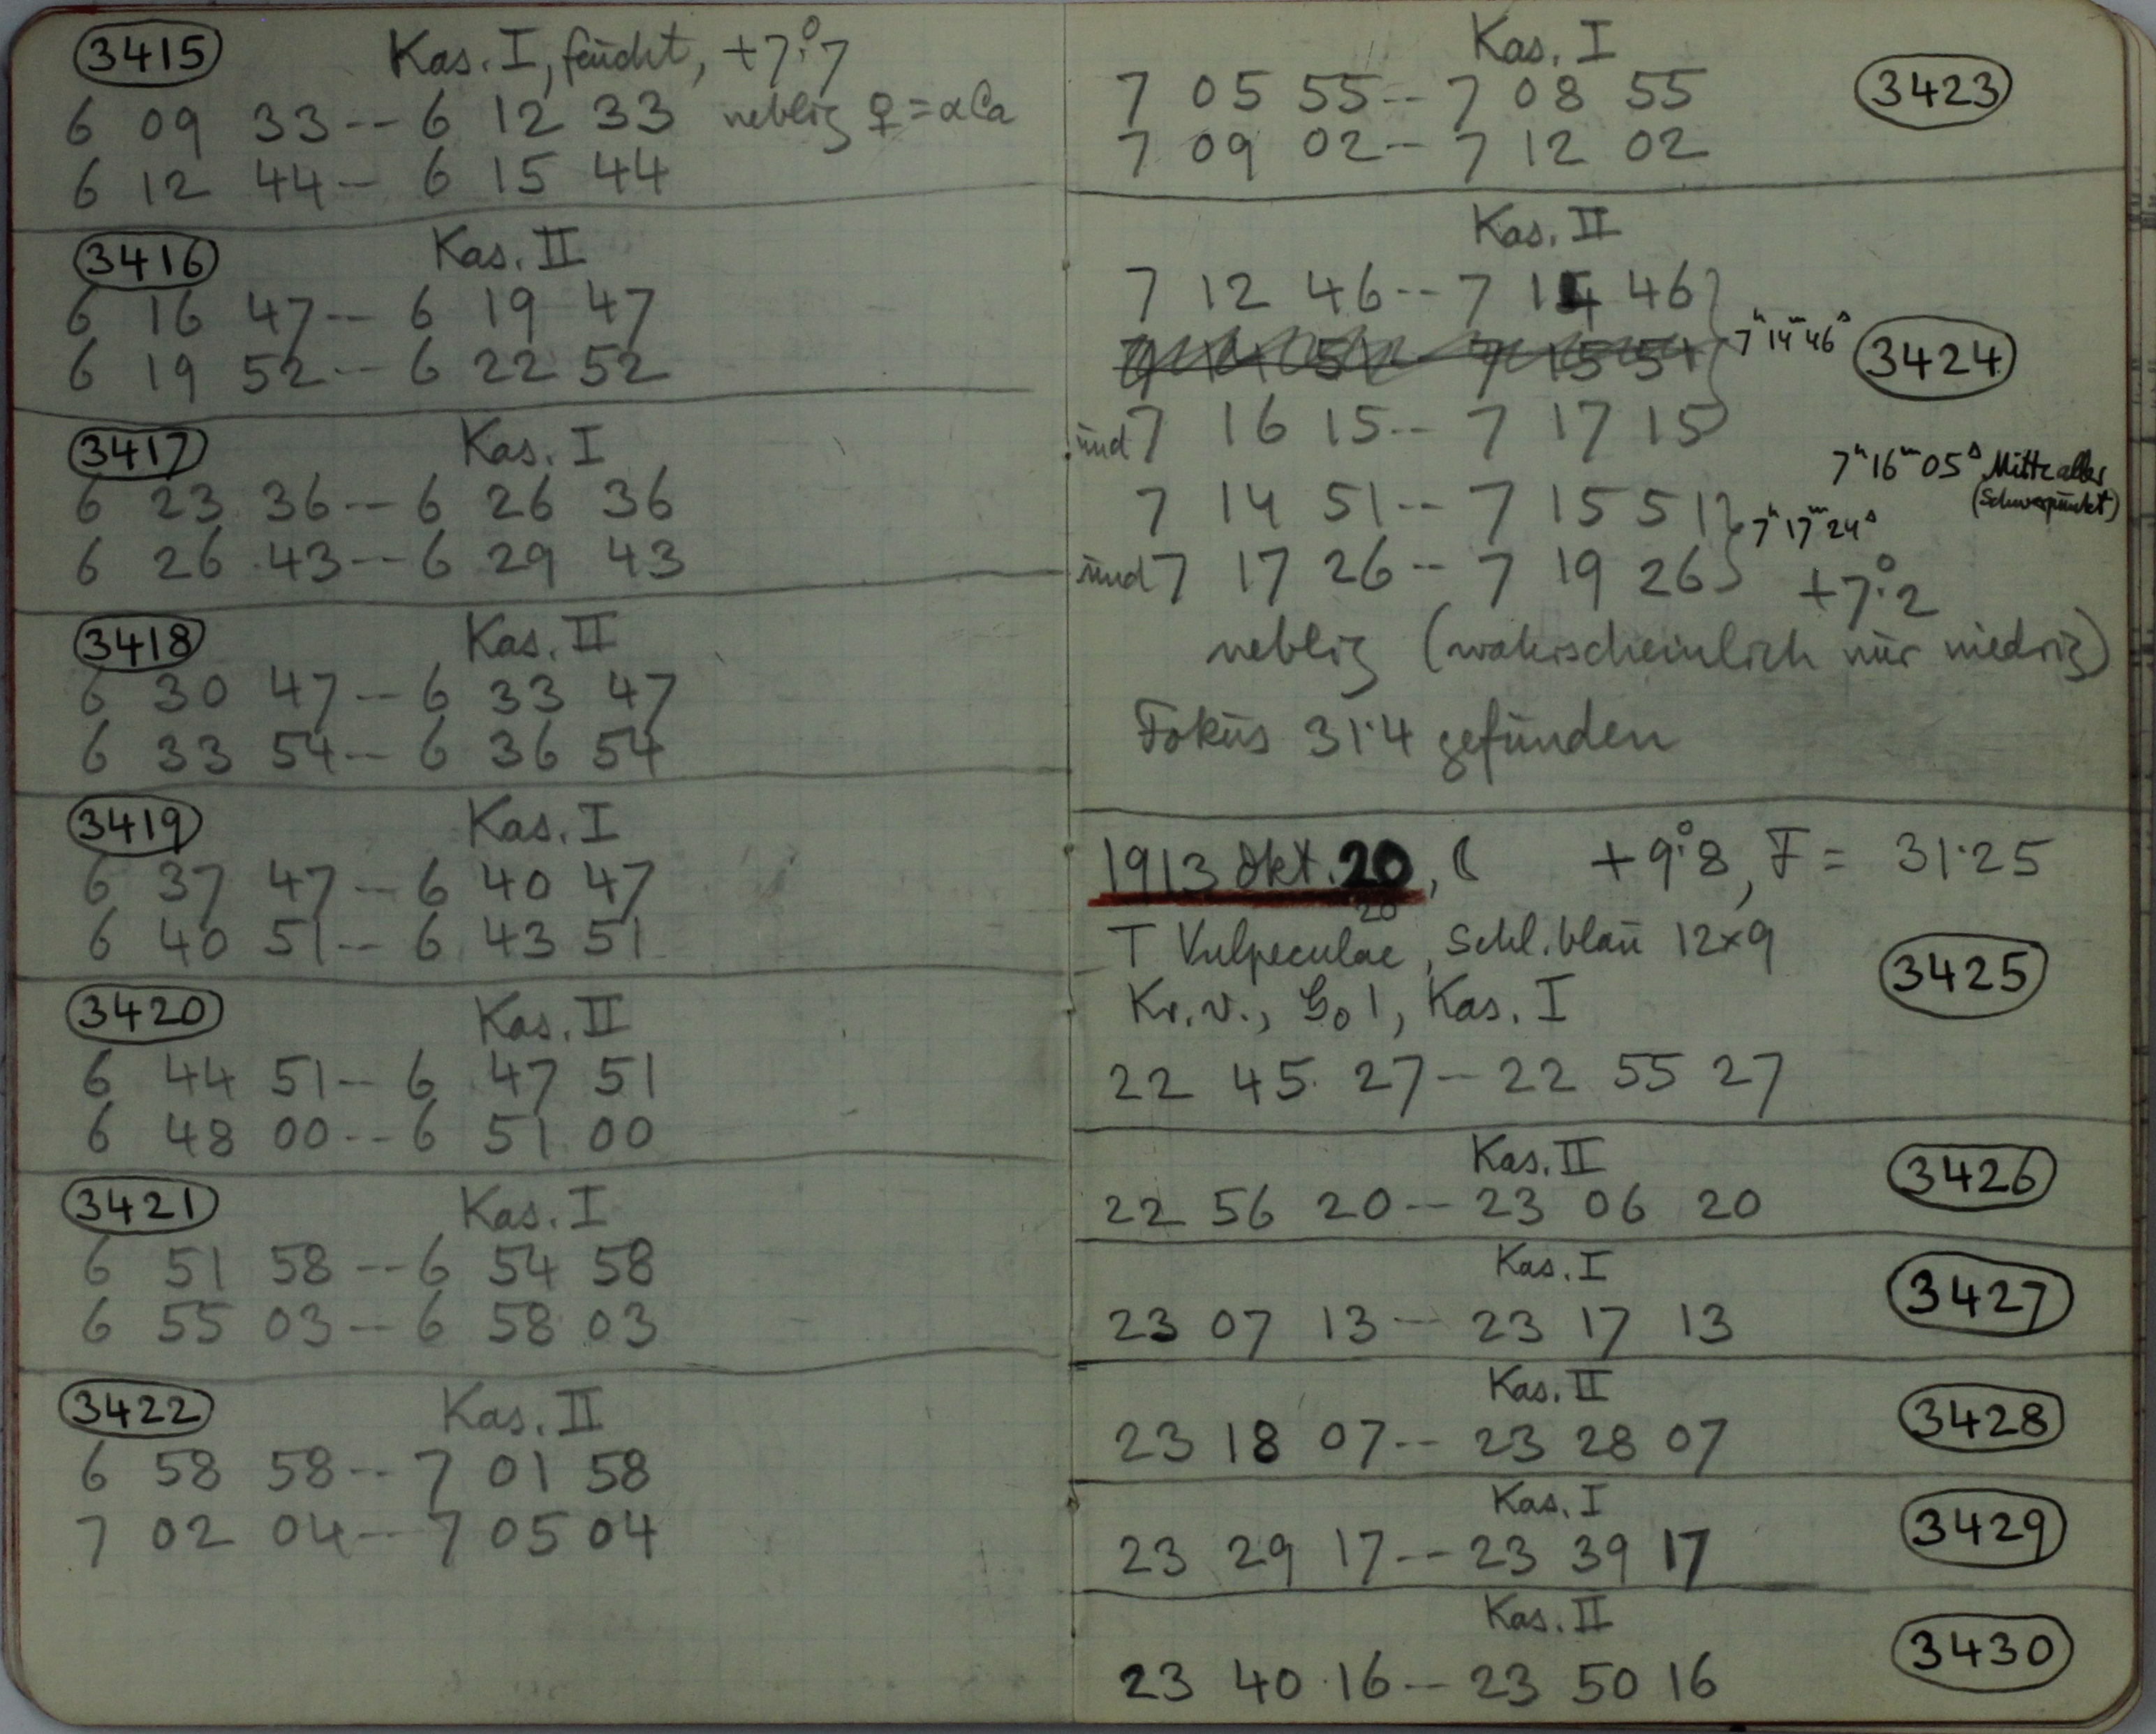 3415 Kas. I, feucht, +7°.7
6 09 33 -- 6 12 33 neblig ♀ = α Ca
6 12 44 -- 6 15 44
3416 Kas. II
6 16 47 -- 6 19 47
6 19 52 -- 6 22 52
3417 Kas. I
6 23 36 -- 6 26 36
6 26 43 -- 6 29 43
3418 Kas. II
6 30 47 -- 6 33 47
6 33 54 -- 6 36 54
3419 Kas. I
6 37 47 -- 6 40 47
6 40 51 -- 6 43 51
3420 Kas. II
6 44 51 -- 6 47 51
6 48 00 -- 6 51 00
3421 Kas. I
6 51 58 -- 6 54 58
6 55 03 -- 6 58 03
3422 Kas. II
6 58 58 -- 7 01 58
7 02 04 -- 7 05 04
Kas. I
7 05 55 -- 7 08 55 3423
7 09 02 -- 7 12 02
Kas. II
7 12 46 -- 7 14 46
7 14 51 -- 7 15 51 7ʰ14ᵐ46ˢ 3424
und 7 16 15 -- 7 17 15
7ʰ16ᵐ05ˢ Mitte aller
(Schwerpunkt)
7 14 51 -- 7 15 51 7ʰ17ᵐ24ˢ
und 7 17 26 -- 7 19 26 +7°.2
neblig (wahrscheinlich nur niedrig)
Fokus 31·4 gefunden
1913 Okt. 20, ☾ +9°.8, F = 31·25
20
T Vulpeculae, Schl. blau 12×9
Kr. v., 1, Kas. I 3425
22 45 27 -- 22 55 27
Kas. II
22 56 20 -- 23 06 20 3426
Kas. I
23 07 13 -- 23 17 13 3427
Kas. II
23 18 07 -- 23 28 07 3428
Kas. I
23 29 17 -- 23 39 17 3429
Kas. II
23 40 16 -- 23 50 16 3430